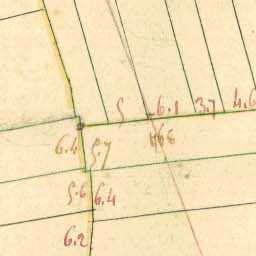 5 6.1 3.7 4.6
6.4 5.7
5.6 6.4
6.2